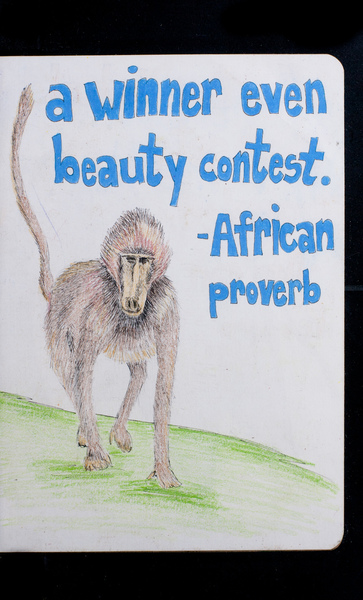 a winner even
beauty contest.
-African
proverb